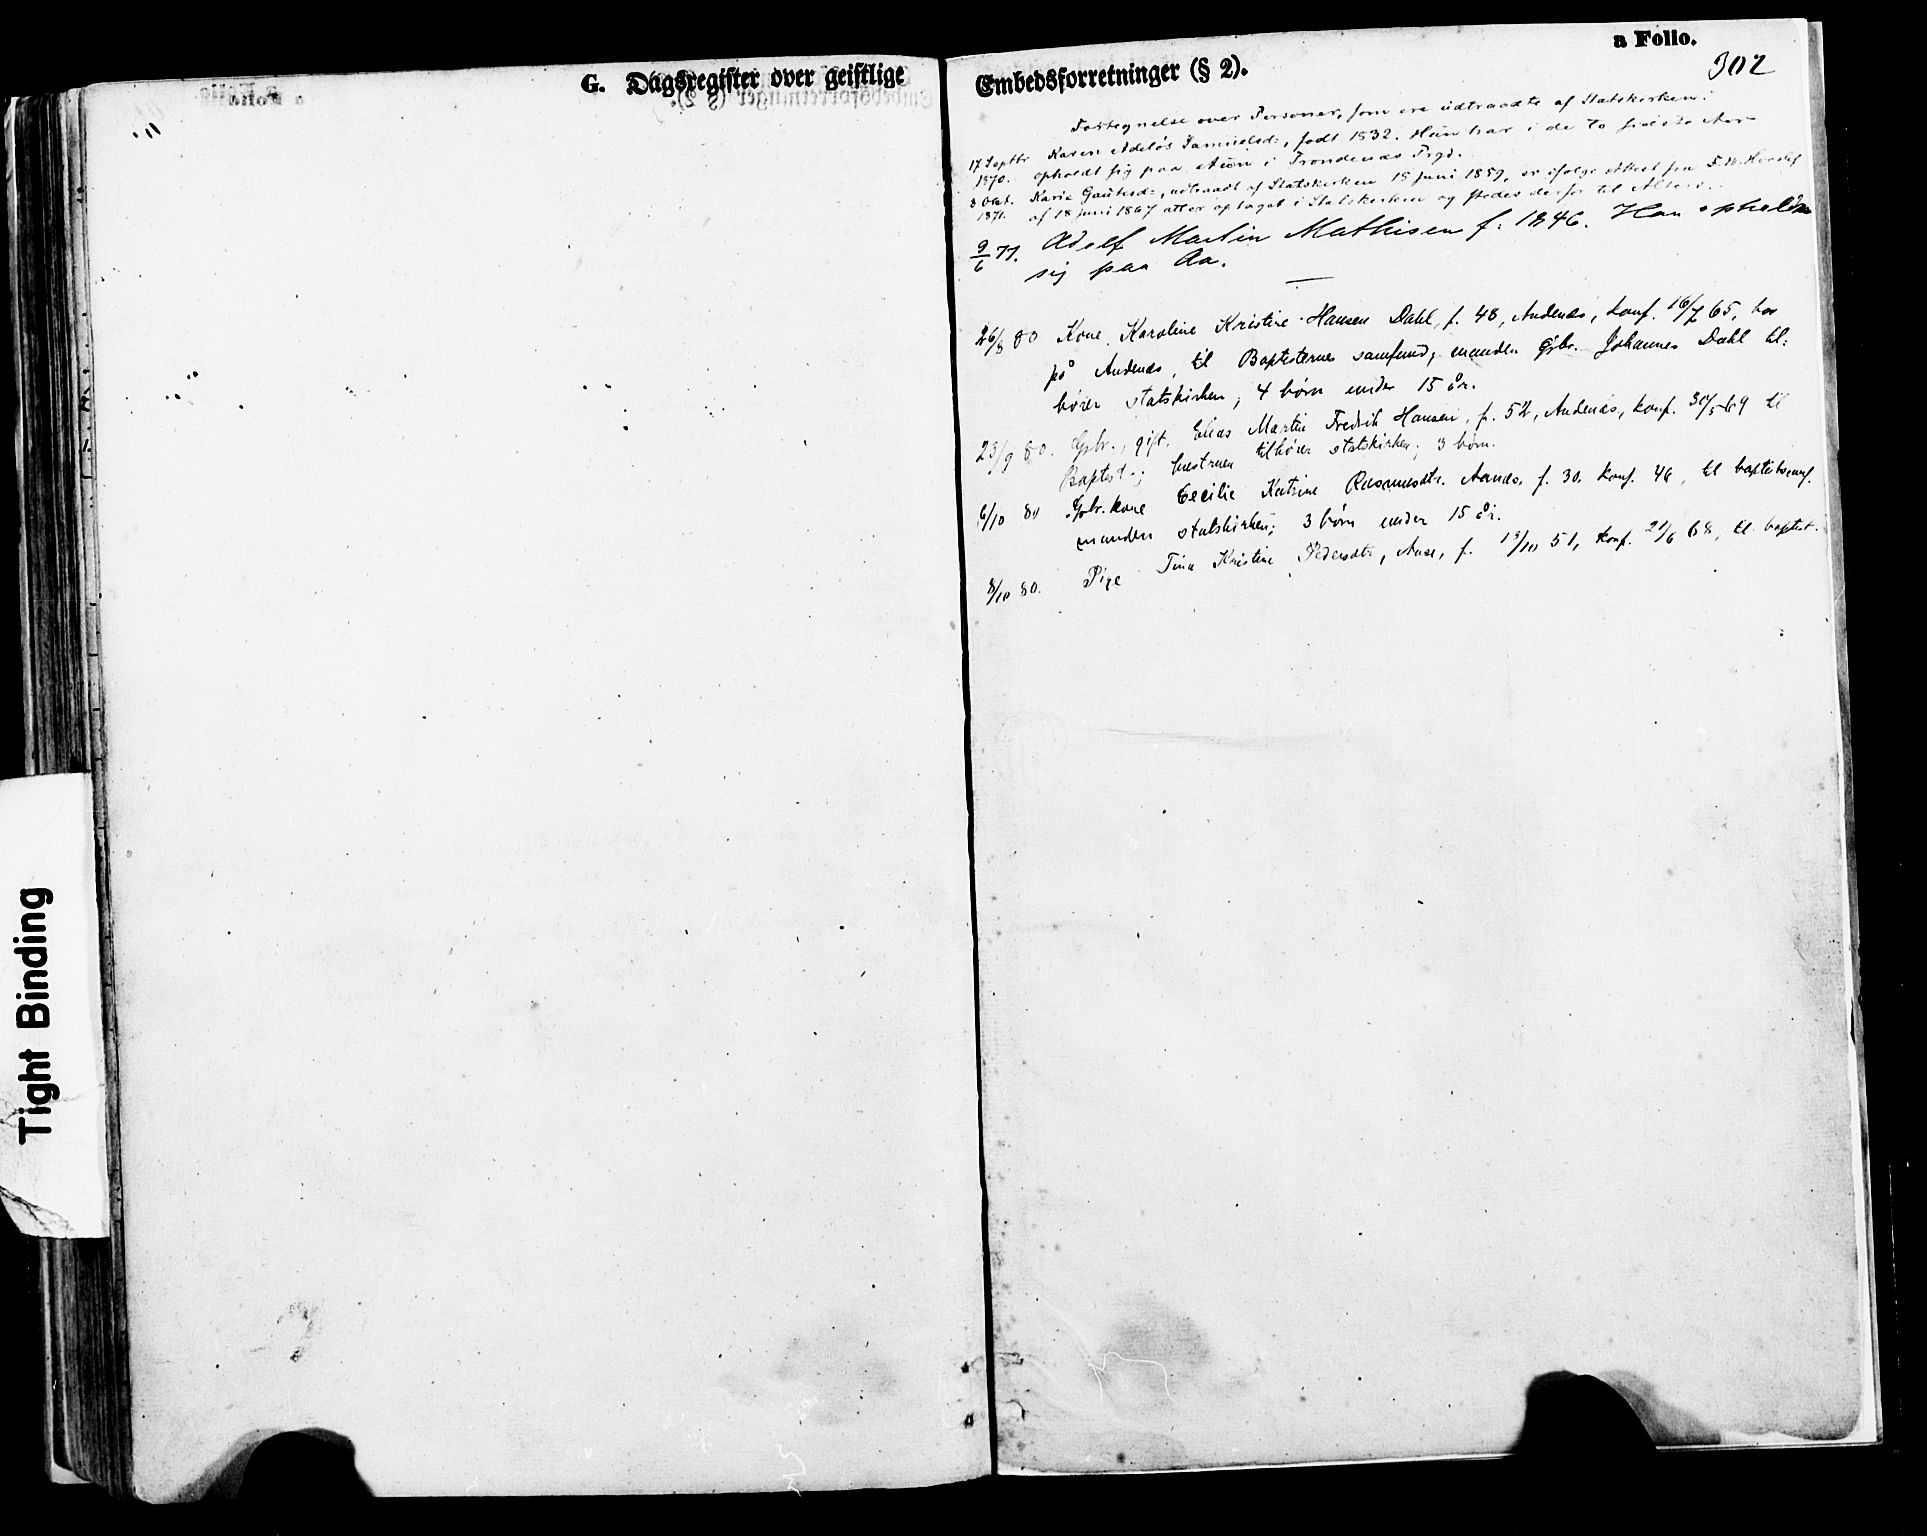 a Folio.
302
G. Dagsregister over geistlige Embedsforretninger (§ 2).
Fortegnelse over Personer, som ere udtraadte af Statskirken:
17 Septbr 1870. Karen Adelös Samuelsd:, født 1832. Hun har i de to sidste Aar
opholdt sig paa i Trondenæs Prgd.
3 Okt. 1871. Karia Gautesd:, udtraadt af Statskirken 18 Juni 1859, er ifølge Attest fra
af 18 Juni 1867 atter optaget i Statskirken og stedes derfor til Alters.
9/6 77. Adolf Martin Mathisen f: 1846. Han opholder
sig paa Aa.
26/8 80 Kone Karoline Kristine Hansen Dahl, f. 48, Andenæs, konf. 16/7 65, bor
på Andenæs, til Baptisternes samfund; manden gbr. Johannes Dahl til:
hører statskirken; 4 børn under 15 år.
23/9 80. Gbr., gift. Elias Martin Fredrik Hansen, f. 52, Andenæs, konf. 30/5 69 til
Baptist.; hustruen tilhører statskirken; 3 børn.
6/10 80 Gbr. kone Cecilie Katrine Rasmusdtr. f. 30. konf. 46, til baptistsamf.
manden statskirken; 3 børn under 15 år.
8/10 80. Pige Tina Kristine Pedersdtr, Aase, f. 13/10 51, konf. 21/6 68, til baptist.
Tight Binding